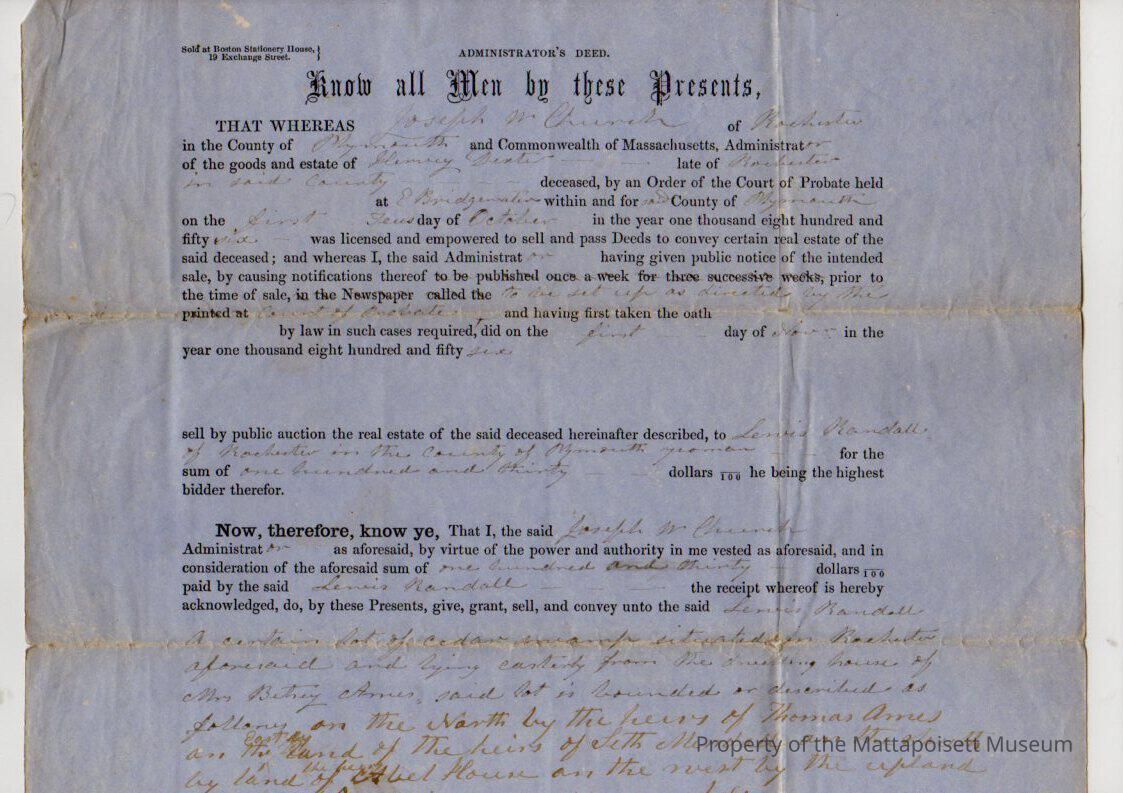 Sold at Boston Stationery House, }
19 Exchange Street. }
ADMINISTRATOR'S DEED.
Know all Men by these Presents,
THAT WHEREAS Joseph W Church of Rochester
in the County of Plymouth and Commonwealth of Massachusetts, Administrator
of the goods and estate of Dexter late of Rochester
in said County deceased, by an Order of the Court of Probate held
at E Bridgewater within and for said County of Plymouth
on the first day of October in the year one thousand eight hundred and
fifty six was licensed and empowered to sell and pass Deeds to convey certain real estate of the
said deceased; and whereas I, the said Administrator having given public notice of the intended
sale, by causing notifications thereof to be published once a week for three successive weeks, prior to
the time of sale, in the Newspaper called the to be set up as directed by the
printed at Court of Probate, and having first taken the oath
by law in such cases required, did on the first day of Nov in the
year one thousand eight hundred and fifty six
sell by public auction the real estate of the said deceased hereinafter described, to Lewis Randall
of Rochester in the County of Plymouth yeoman for the
sum of one hundred and thirty dollars 100 he being the highest
bidder therefor.
Now, therefore, know ye, That I, the said Joseph W Church
Administrator as aforesaid, by virtue of the power and authority in me vested as aforesaid, and in
consideration of the aforesaid sum of one hundred and thirty dollars 100
paid by the said Lewis Randall the receipt whereof is hereby
acknowledged, do, by these Presents, give, grant, sell, and convey unto the said Lewis Randall
A certain lot of cedar swamp situated in Rochester
aforesaid and lying easterly from the dwelling house of
Mrs Betsey Ames, said lot is bounded or described as
follows on the North by the heirs of Thomas Ames
on the East by land of the heirs of Seth
by land of the heirs Abel House on the west by the upland
Property of the Mattapoisett Museum